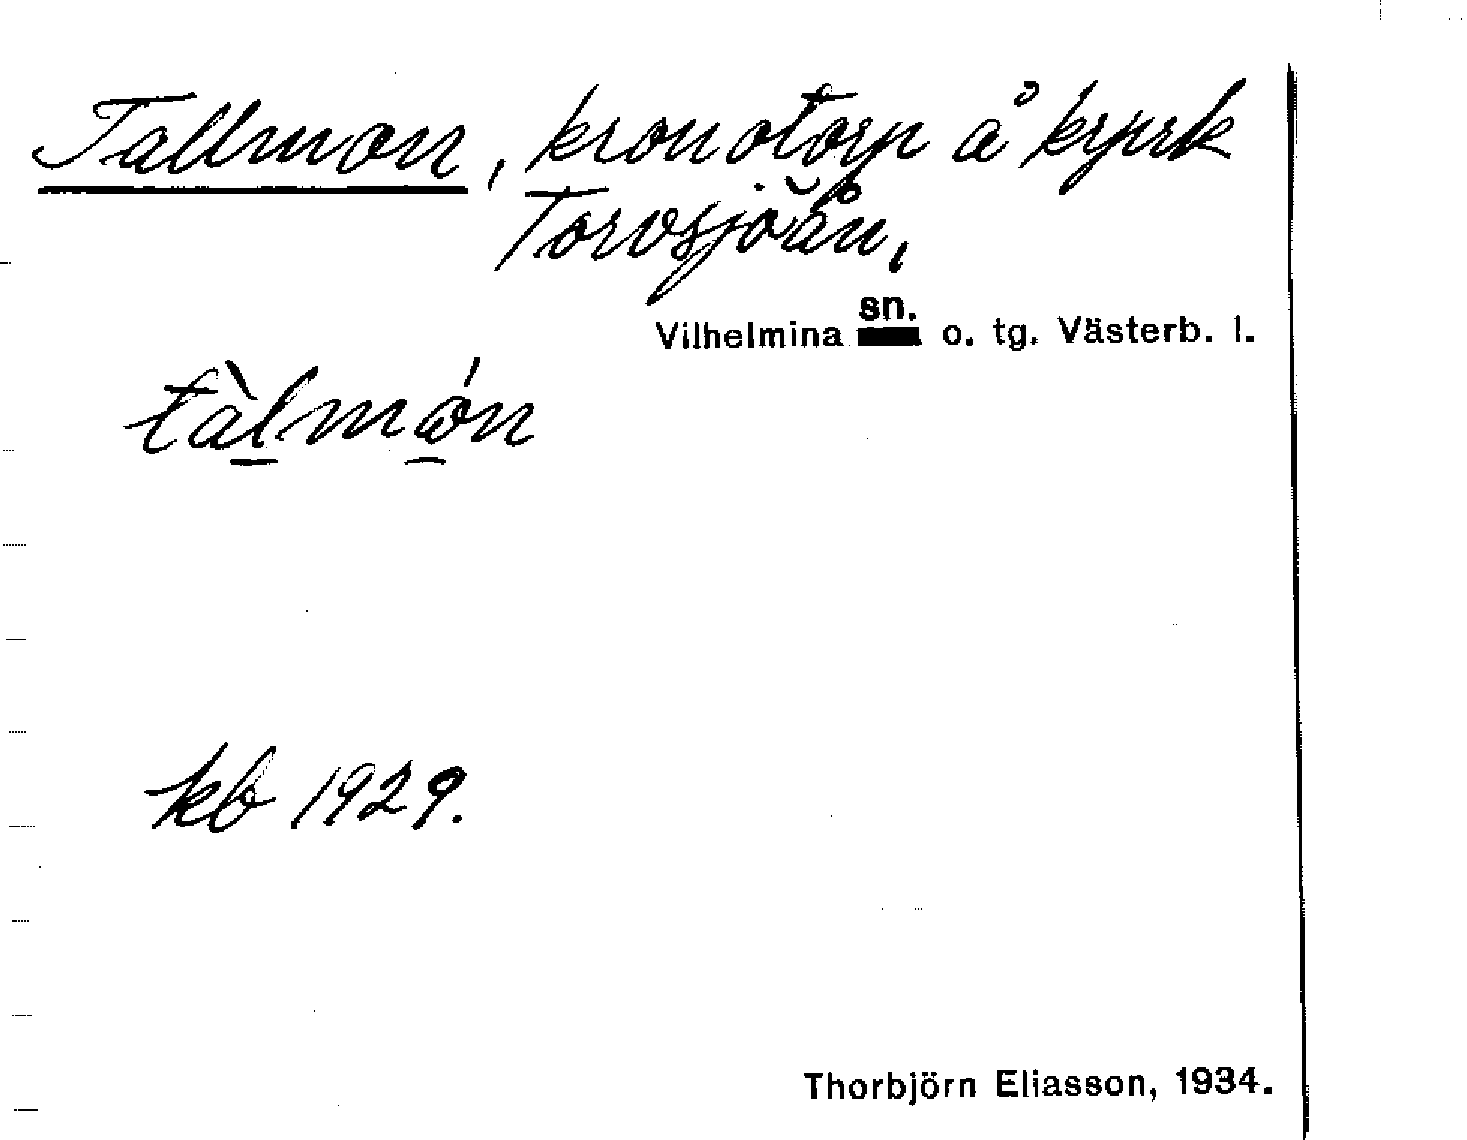 Tallmon, kronotorp å kyrk
Torvsjöån,
sn.
Vilhelmina o. tg. Västerb. l.
tàl̲mó̲n
kb 1929.
Thorbjörn Eliasson, 1934.